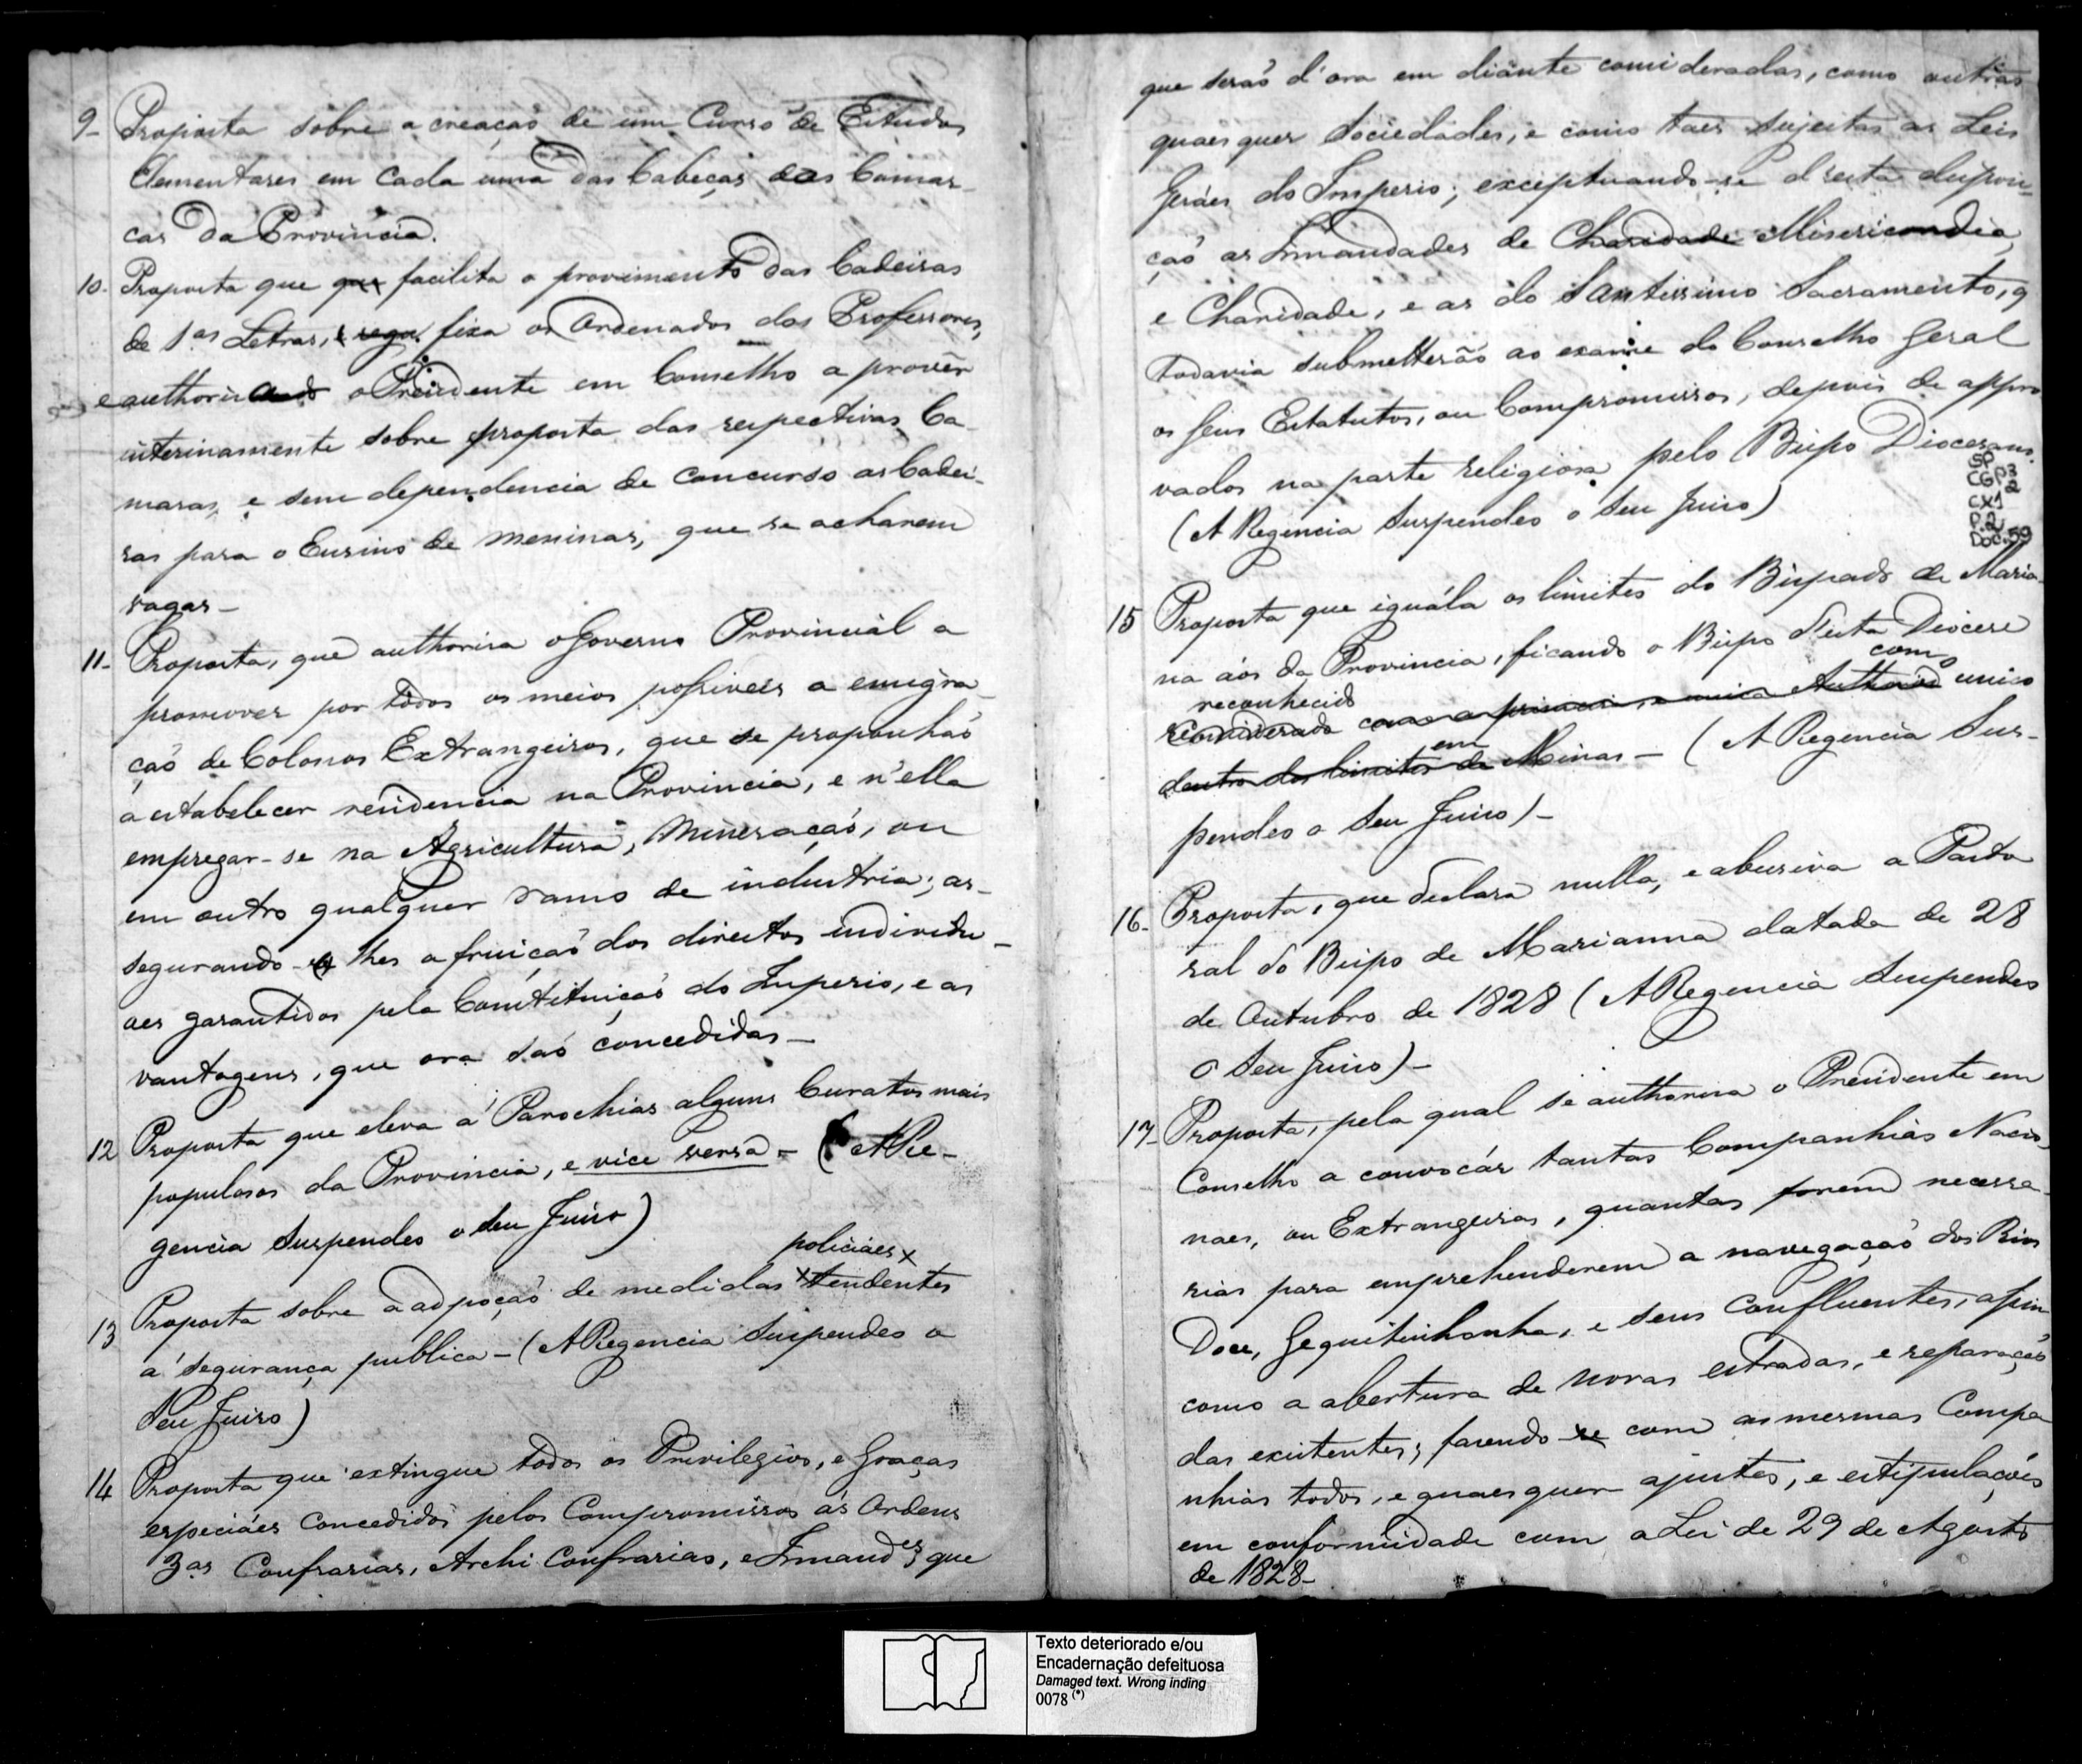 9- Proposta sobre a creaçaõ de um Curso de Estudos
Elementares em cada uma das Cabeças das Comar-
cas da Provincia.
10- Proposta que facilita o provimento das Cadeiras
de 1as Letras, fixa os Ordenados dos Professores,
e authorisando o Presidente em Conselho a provêr
interinamente sobre proposta das respectivas Ca-
maras, e sem dependencia de concurso as Cadei-
ras para o Ensino de meninas, que se acharem
vagas-
11- Proposta, que authorisa o Governo Provincial a
promover por todos os meios possiveis a emigra-
çaõ de Colonos Extrangeiros, que se proponhaõ
a estabelecer residencia na Provincia, e n'ella
empregar-se na Agricultura, Mineraçaõ, ou
em outro qualquer ramo de industria; as-
segurando-lhes a fruiçaõ dos direitos individu-
aes garantidos pela Constituiçaõ do Imperio, e as
vantagens, que ora saõ concedidas-
12 Proposta que eleva a Parochias alguns Curatos mais
populosos da Provincia, e vice versa - (A Re-
gencia Suspendeo o seu Juizo)
policiaes
13 Proposta sobre a adpoçaõ de medidas tendentes
a' segurança publica - (A Regencia Suspendeo o
seu Juizo)
14 Proposta que extingue todos os Privilegios, e Graças
especiáes concedidos pelos Compromissos ás Ordens
3as Confrarias, Archi Confrarias, e Irmandes, que
que seraõ d'ora em diante consideradas, como outras
quaesquer Sociedades, e como taes sujeitas as Leis
Geráes do Imperio; exceptuando-se d'esta disposi-
çaõ as Irmandades de Charidade Misericordia,
e Charidade, e as do Santissimo Sacramento, q
todavia submetteraõ ao exame do Conselho Geral
os seus Estatutos, ou Compromissos, depois de appro
vados na parte religiosa pelo Bispo Diocesano.
(A Regencia Suspendeo o Seu Juizo)
SP
CGP3
CX12
P.2
Doc.59
15 Proposta que iguála os limites do Bispado de Maria-
na aós da Provincia, ficando o Bispo d'esta Diocese
reconhecido como
considerado como a primeira, e unica Authorid unico
dentro dos limites de em Minas - (A Regencia Sus-
pendeo o Seu Juizo)-
16- Proposta, que declara nulla, e abusiva a Pasto
ral do Bispo de Marianna datada de 28
de Outubro de 1828 (A Regencia Suspendeo
o Seu Juizo)-
17- Proposta, pela qual se authorisa o Presidente em
Conselho a convocár tantas Companhias Nacio-
naes, ou Extrangeiras, quantas forem necessa-
rias para emprehenderem a navegaçaõ dos Rios
Doce, Gequitinhonha, e seus confluentes, assim
como a abertura de novas estradas, e reparaçaõ
das existentes; fazendo-se com as mesmas Compa
nhias todos, e quaesquer ajustes, e estipulaçoẽs
em conformidade com a Lei de 29 de Agosto
de 1828-
Texto deteriorado e/ou
Encadernação defeituosa
Damaged text. Wrong inding
0078 (*)